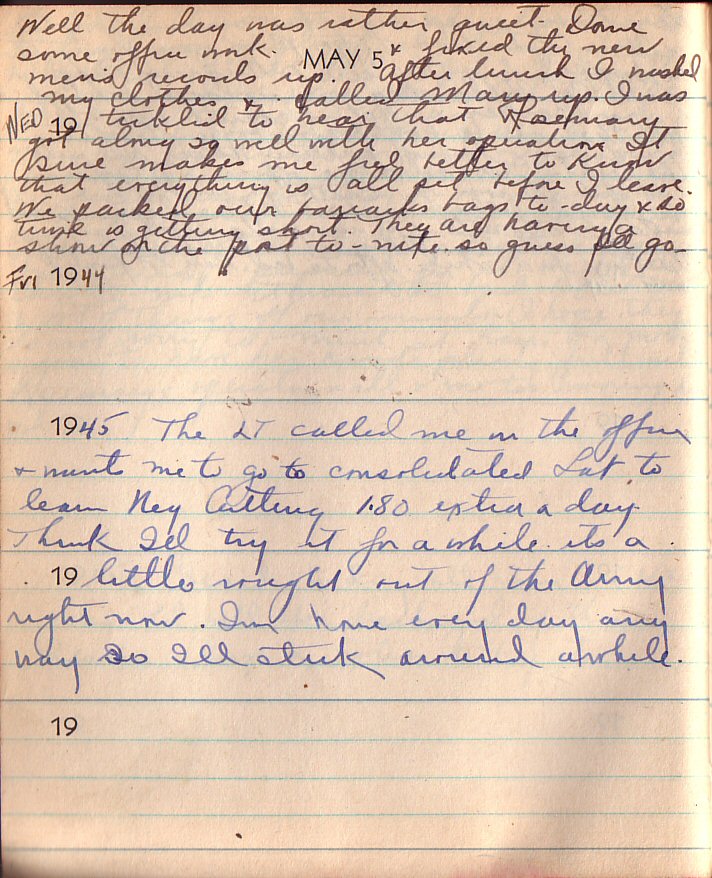 Well the day was rather quiet. Done
some office work. & fixed the new
MAY 5
mens records up. After lunch I washed
my clothes & called Mary up. I was
WED 19 tickled to hear that Rosemary
got along so well with her operation. It
sure makes me feel better to know
that everything is all set before I leave.
We packed our barracks bags to-day & so
time is getting short. They are having a
show on the post to-nite so guess I'll go
Fri 1944
1945 The LT called me in the office
& wants me to go to consolidated Sat. to
learn Neg Cutting 1.80 extra a day
Think Ill try it for a while. its a
19 little rought out of the Army
right now. Im home every day any
way so Ill stick around awhile.
19